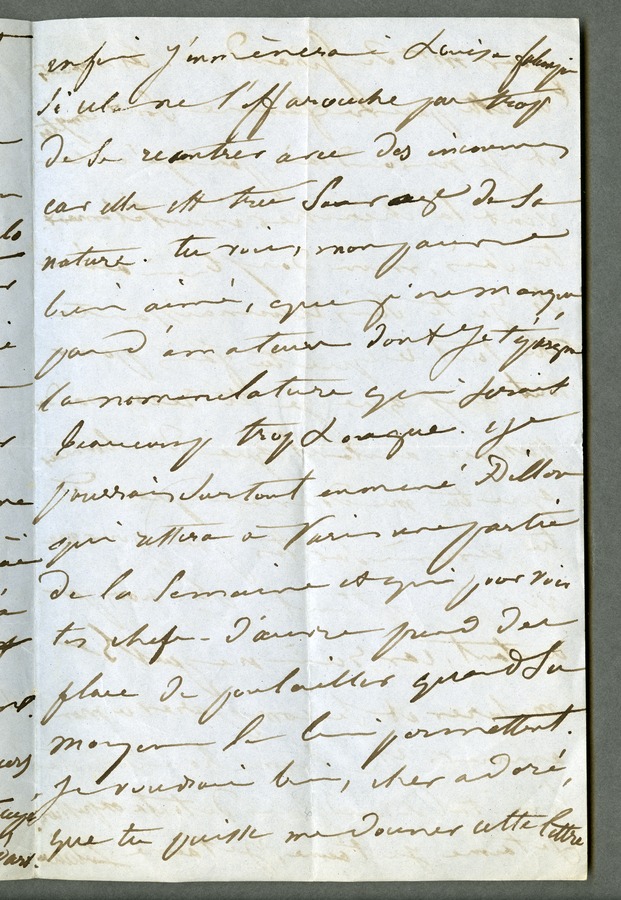 enfin j'emmènerai Louise
si cela ne l'effarouche pas trop
de se rencontrer avec des inconnus
car elle est très sauvage de sa
nature. tu vois, mon pauvre
bien aimé, que je ne manque
pas d'amateurs dont je t'épargne
la nomenclature qui serait
beaucoup trop Longue. je
pourrais surtout emmener Dillon
qui restera à Paris une partie
de la Semaine et qui pour voir
tes chefs-d'œuvre prend des
place de poulailler quand Ses
moyens le lui permettent.
Je voudrais bien, cher adoré,
que tu puisse me donner cette lettre